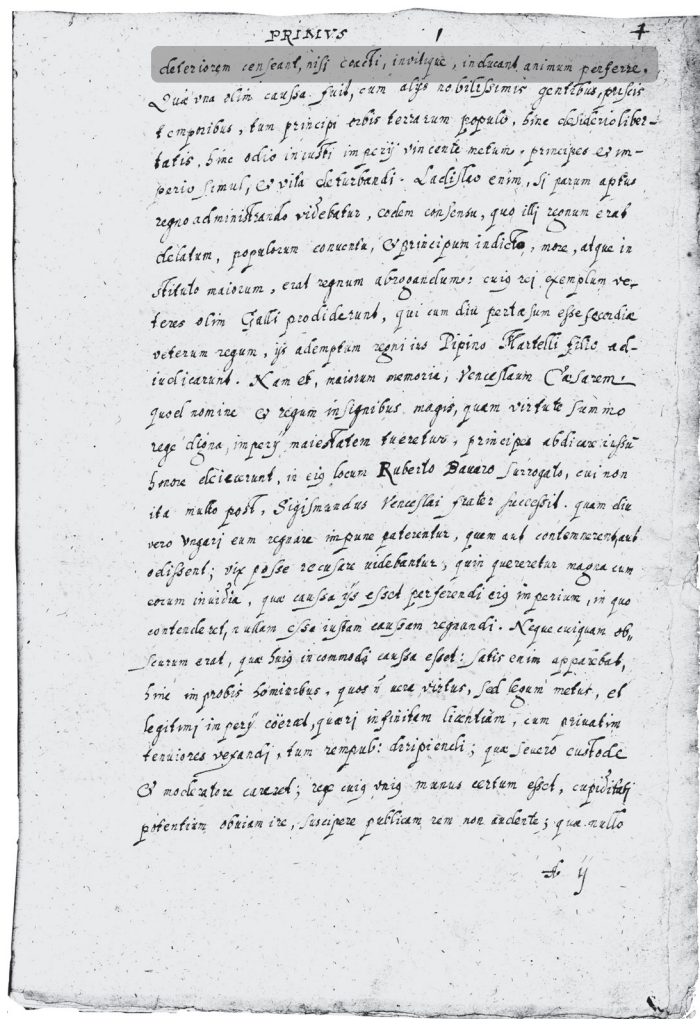 PRIMVS 1 4
deteriorem censeant, nisi coacti, invitique, inducant animum perferre.
Quæ vna olim caussa fuit, cum alijs nobilissimis gentibus, priscis
temporibus, tum principi orbis terrarum populo, hinc desiderio liber-
tatis, hinc odio iniusti imperij vincente metum, principes & im-
perio simul, & vita deturbandi. Ladislao enim, si parum aptus
regno administrando videbatur, eodem consensu, quo illi regnum erat
delatum, populorum conventu, & principum indicto, more, atque in
stituto maiorum, erat regnum abrogandum: cuiꝰ rei exemplum ve-
teres olim Galli prodiderunt, qui cum diu pertæsum esset secordiæ
veterum regum, ijs ademptum regni ius Pipino Martelli filio ad-
iudicarunt. Nam et, maiorum memoria, Venceslaum Cæsarem
quod nomine & regum insignibus magis, quam virtute summo
rege digna, imperij maiestatem tueretur, principes abdicare iussū
honore deiecerunt, in eiꝰ locum Ruberto Bavaro surrogato, cui non
ita multo post, Sigismundus Venceslai frater successit. quam diu
vero Vngari eum regnare impune paterentur, quem aut contemnerent, aut
odissent; vix posse recusare uidebantur, quin quereretur magna cum
eorum inuidia, quæ caussa ijs esset perferendi eiꝰ imperium, in quo
contenderet, nullam esse iustam caussam regnandi. Neque cuiquam ob-
scurum erat, quæ huiꝰ incommodi caussa esset: satis enim apparebat,
hinc improbis hominibus, quos n̄ uera virtus, sed legum metus, et
legitimi imperij coërcet, quæri infinitam licentiam, cum privatim
tenuiores vexandi, tum rempub: diripiendi; quæ severo custode
& moderatore careret; rege cuiꝰ vniꝰ munus certum esset, cupiditati
potentium obuiam ire, suscipere publicam rem non audente; quæ nullo
A ij